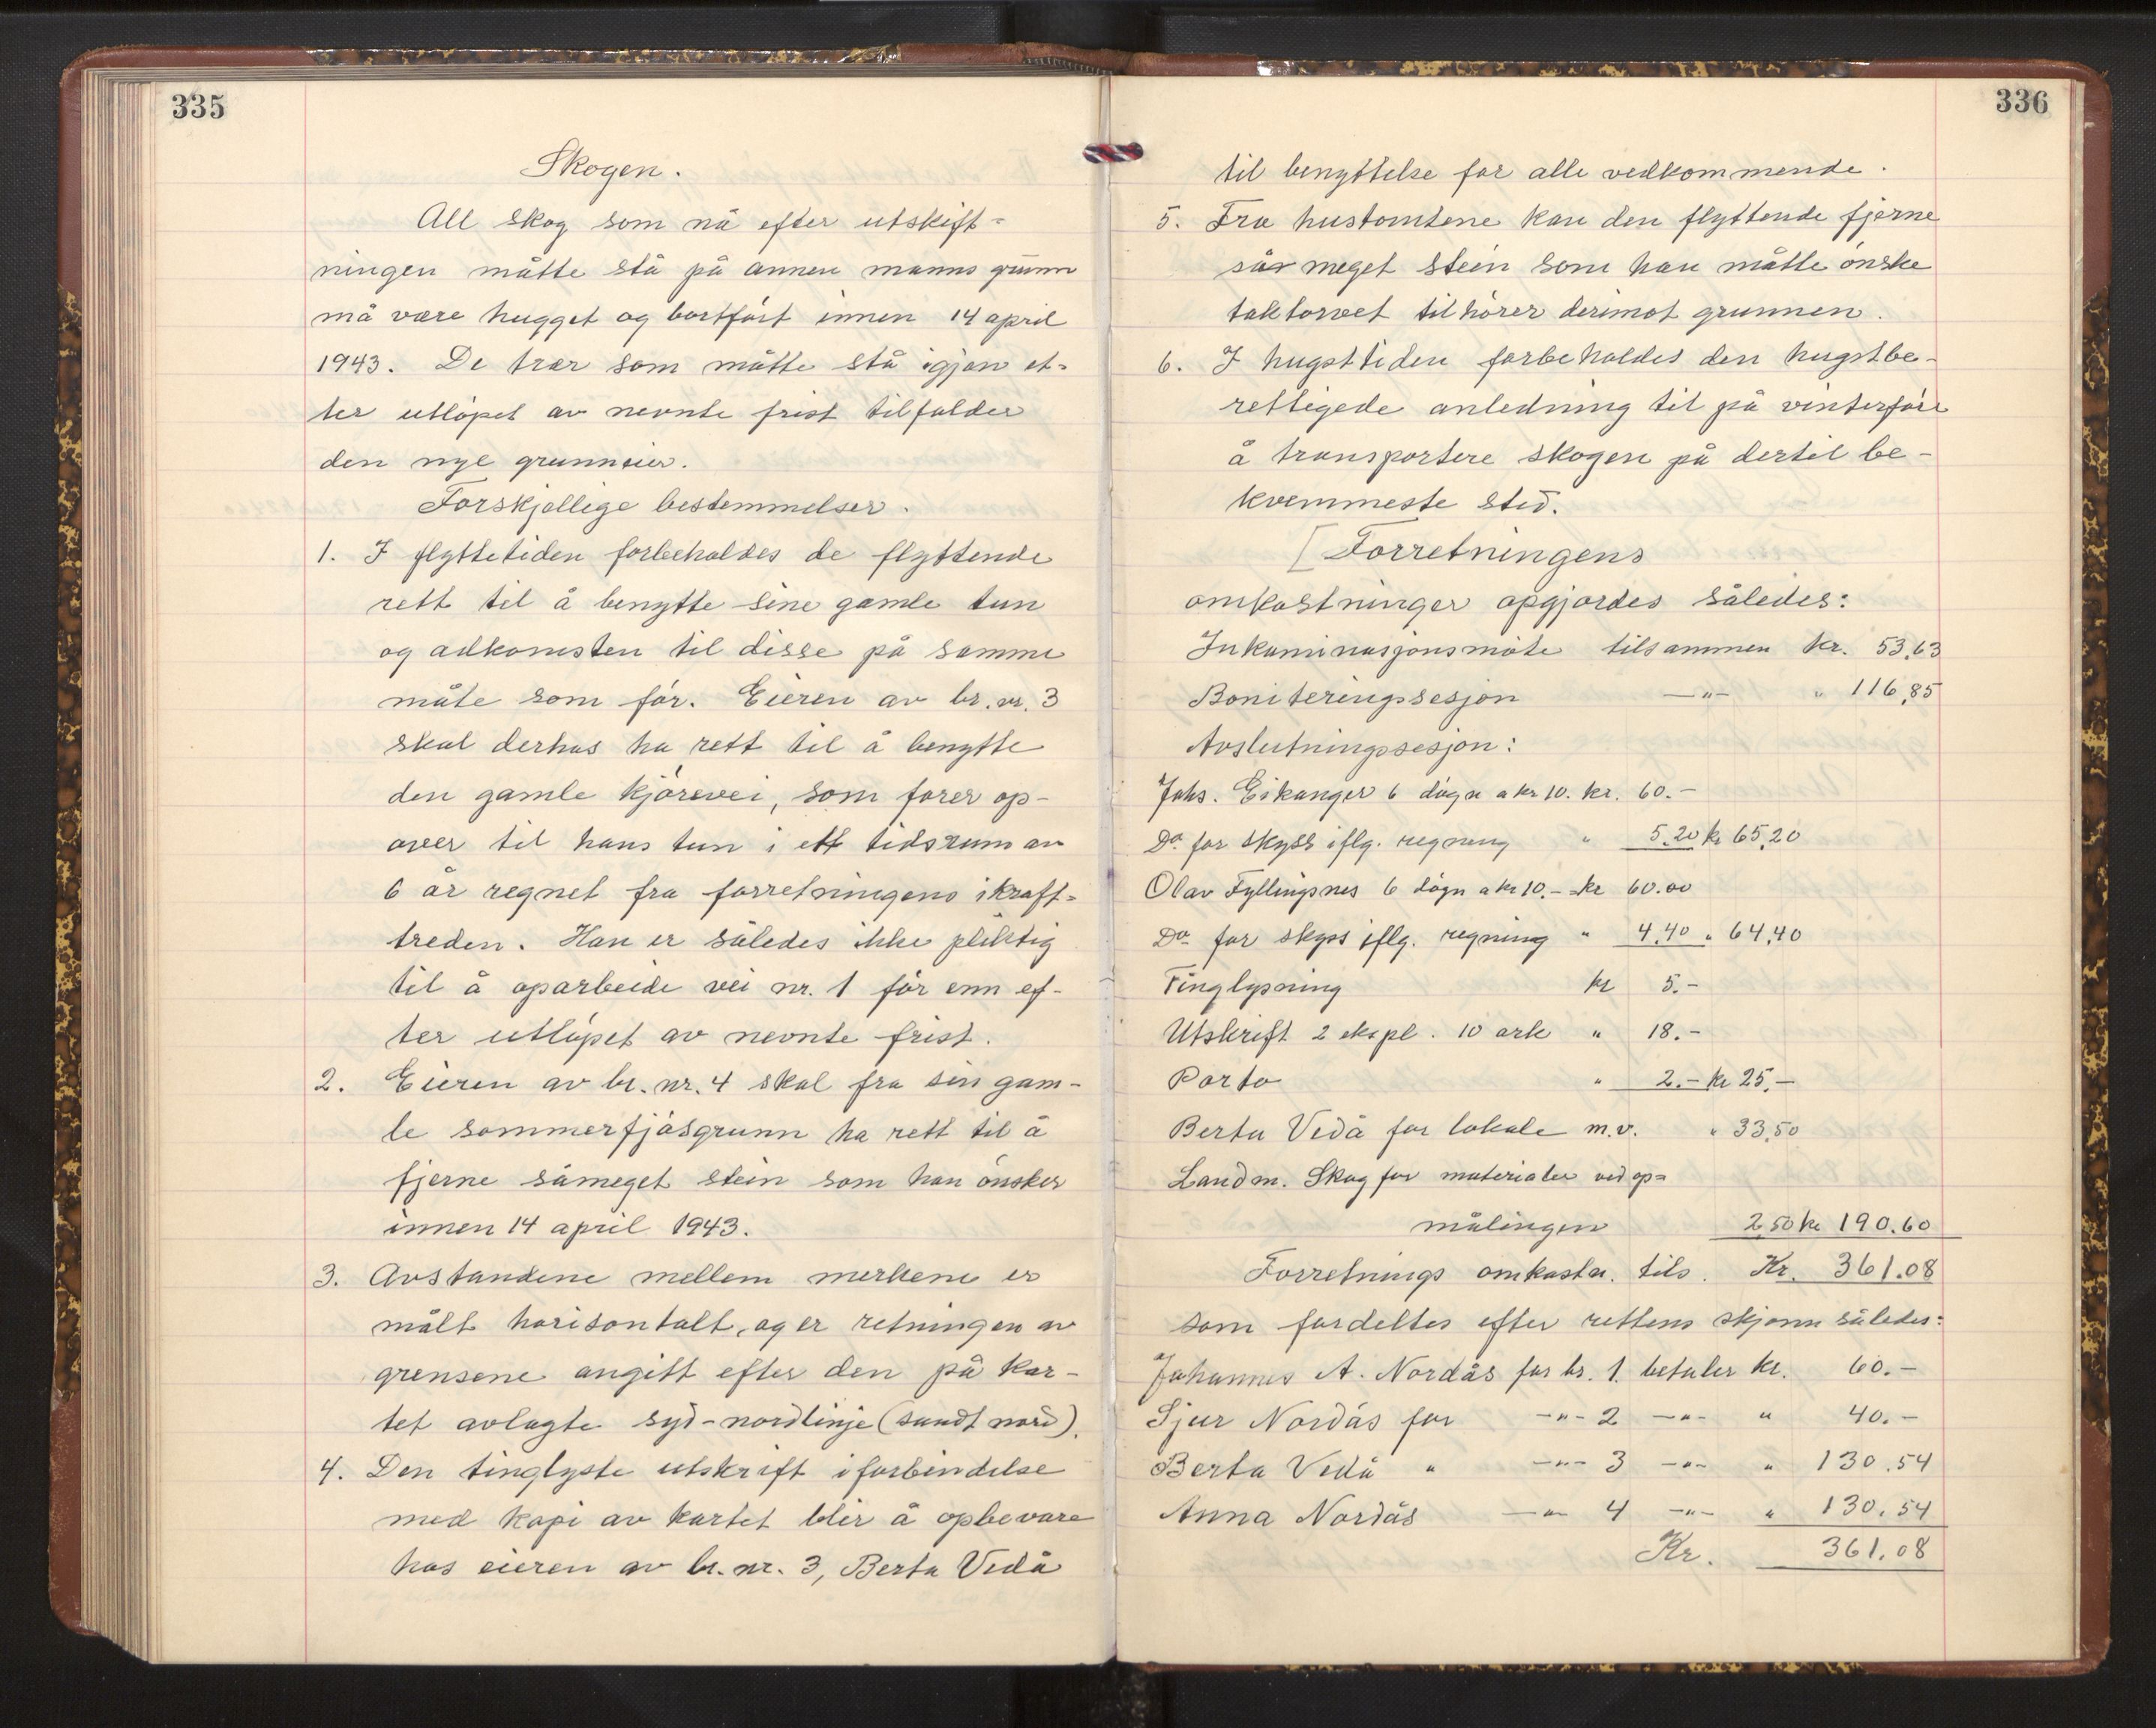 335
Skogen.
All skog som nå efter utskift-
ningen måtte stå på annen manns grunn
må være hugget og bortført innen 14 april
1943. De trær som måtte stå igjen et-
ter utløpet av nevnte frist tilfalder
den nye grunneier.
Forskjellige bestemmelser.
1. I flyttetiden forbeholdes de flyttende
rett til å benytte sine gamle tun
og adkomsten til disse på samme
måte som før. Eieren av br. nr. 3
skal derhos ha rett til å benytte
den gamle kjørevei, som fører op-
over til hans tun i ett tidsrum av
6 år regnet fra forretningens ikraft-
treden. Han er således ikke pliktig
til å oparbeide vei nr. 1 før enn ef-
ter utløpet av nevnte frist.
2. Eieren av br. nr. 4 skal fra sin gam-
le sommerfjøsgrunn ha rett til å
fjerne såmeget stein som han ønsker
innen 14 april 1943.
3. Avstandene mellem merkene er
målt horisontalt, og er retningen av
grensene angitt efter den på kar-
tet avlagte syd-nordlinje (sandt nord).
4. Den tinglyste utskrift i forbindelse
med kopi av kartet blir å opbevare
hos eieren av br. nr. 3, Berta Vedå
336
til benyttelse for alle vedkommende.
5. Fra hustomtene kan den flyttende fjerne
så meget stein som han måtte ønske
taktorvet tilhører derimot grunnen.
6. I hugsttiden forbeholdes den hugstbe-
rettigede anledning til på vinterføre
å transportere skogen på dertil be-
kvemmeste sted.
[Forretningens
omkostninger opgjordes således:
Inkaminasjonsmøte tilsammen kr. 53,63
Boniteringssesjon —"— " 116,85
Avslutningssesjon:
Johs. Eikanger 6 døgn a kr 10. kr. 60.-
Do for skyss iflg. regning " 5.20 kr 65,20
Olav Fyllingsnes 6 døgn a kr 10.- kr 60.00
Do for skyss iflg. regning " 4,40 " 64,40
Tinglysning kr 5.-
Utskrift 2 ekspl. 10 ark " 18.-
Porto " 2.- kr 25,-
Berta Vedå for lokale m.v. " 33,50
Landm. Skog for materialer ved op-
målingen 2,50 kr 190.60
Forretnings omkostn. tils. Kr. 361.08
som fordeltes efter rettens skjønn således:
Johannes A. Nordås for br. 1. betaler kr. 60.-
Sjur Nordås for —"— 2 —"— " 40.-
Berta Vedå " —"— 3 —"— " 130.54
Anna Nordås —"— 4 —"— " 130.54
Kr. 361.08